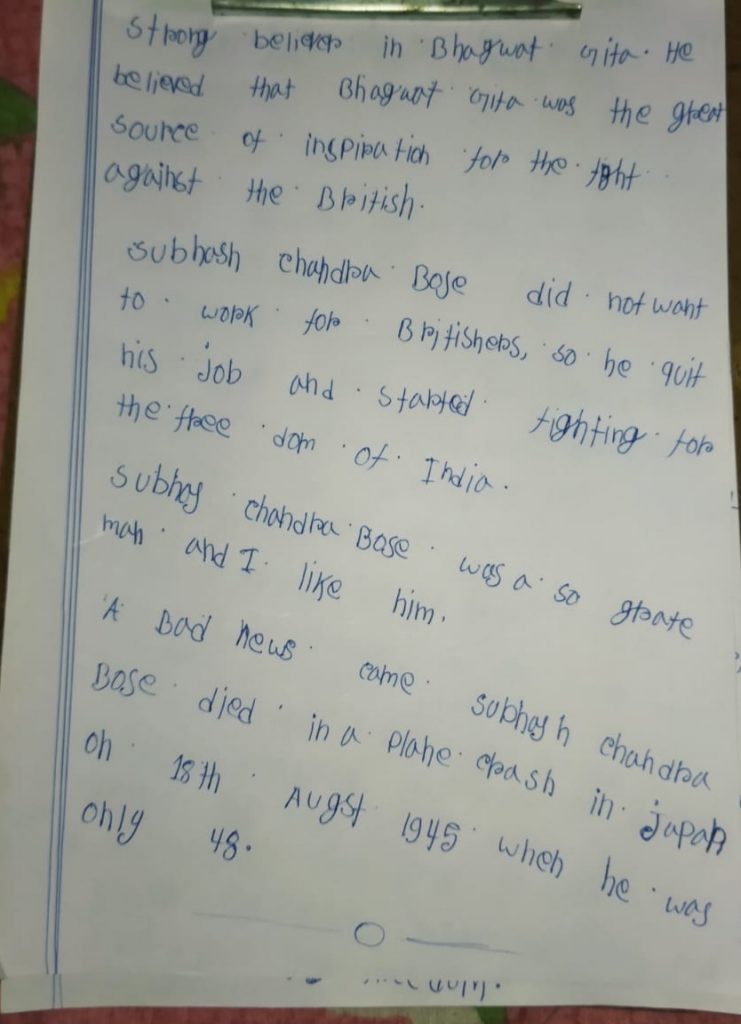 Strong believer in Bhagwat Gita. He
believed that Bhagwat Gita was the great
source of inspiration for the fight
against the British.
Subhash chandra Bose did not want
to work for Britishers, so he quit
his job and started fighting for
the free dom of India.
Subhas chandra Bose was a so grate
man and I like him.
A Bad news came Subhash chandra
Bose died in a plane crash in japan
on 18th Augst 1945 when he was
only 48.